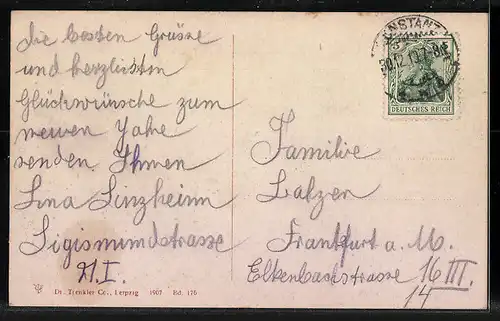 die besten Grüsse
und herzlichsten
Glückwünsche zum
neuen Jahre
senden Ihnen
Lina Sinzheim
Sigismundstrasse
21.I.
Dr. Trenkler Co., Leipzig 1907 Ed. 176
KONSTANZ
30.12.
DEUTSCHES REICH
Familie
Balzer
Frankfurt a. M.
Elkenbachstrasse 16 III.
14